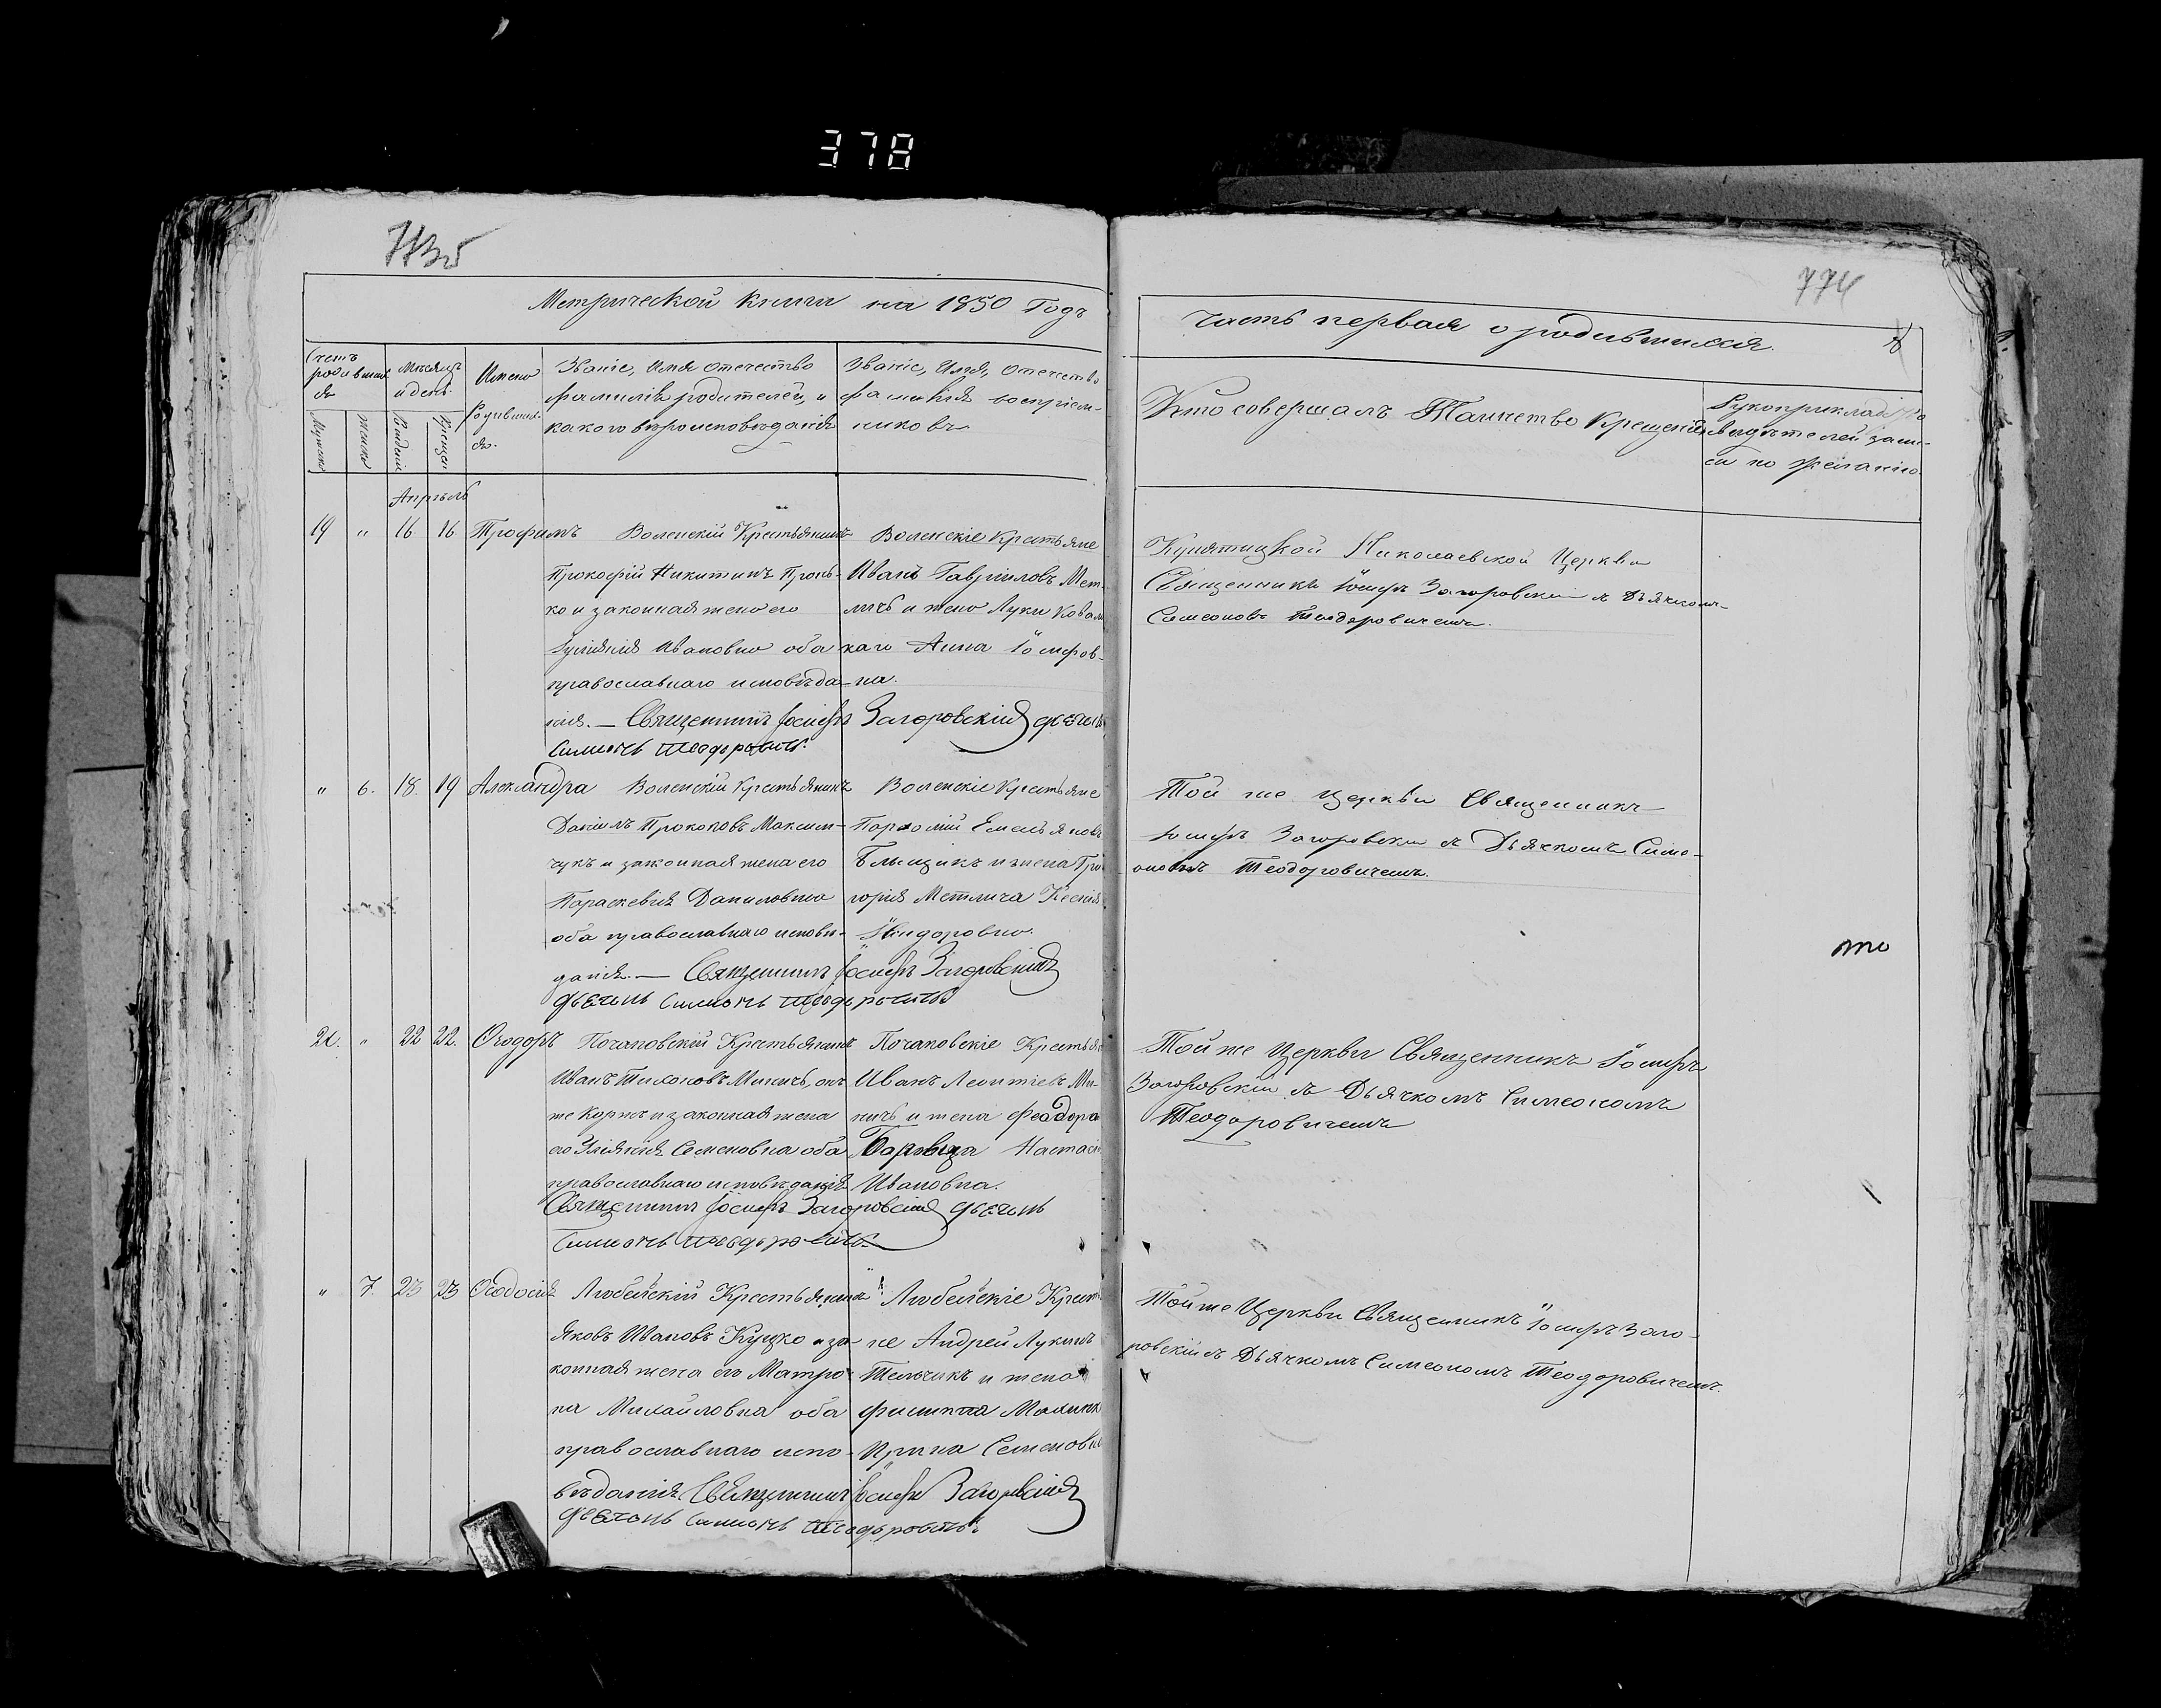 378
773б
774
Метрической книги на 1850 Годъ
часть первая о родившихся.
Счетъ родившихся
Мѣсяцъ и день
Имена Родившихся.
Званіе, Имя Отечество
фамилія родителей, и
какого вѣроисповѣданія
Званіе, Имя, Отечество
фамилія воспріем-
никовъ
Кто совершалъ Таинство Крещенія
Рукоприкладство
свидѣтелей запи-
си по желанію.
Мужеска
Женска
Рожденія
Крещен.
Апрѣль
19 " 16 16 Трофимъ
Воленскій Крестьянинъ
Прокофій Никитинъ Проць-
ко и законная жена его
Ивановна оба
православнаго исповѣда-
нія. — Священникъ Іосифъ Загоровскій дьячокъ
Симеонъ Теодоровичъ.
Воленскіе Крестьяне
Иванъ Гавріиловъ Мет-
личъ и жена Луки Коваль
каго Анна Іосифов-
на.
Николаевской Церкви
Священникъ Іосифъ Загоровскій съ Дьячкомъ
Симеономъ Теодоровичемъ.
" 6. 18. 19 Александра
Воленскій Крестьянинъ
Даніилъ Прокоповъ Максим-
чукъ и законная жена его
Параскевія Даниловна
оба православнаго исповѣ-
данія. — Священникъ Іосифъ Загоровскій
дьячокъ Симеонъ Теодоровичъ
Воленскіе Крестьяне
Пархомій Емельяновъ
и жена Гри-
горія Метлича Ксенія
Той же церкви Священникъ
Іосифъ Загоровскій съ Дьячкомъ Симе-
ономъ Теодоровичемъ.
20. " 22 22. Ѳеодоръ
Почаповскій Крестьянинъ
Иванъ Тихоновъ Миничъ, онъ
же Корнъ и законная жена
его Уліянія Семеновна оба
православнаго исповѣданія
Священникъ Іосифъ Загоровскій дьячокъ
Симеонъ Теодоровичъ.
Почаповскіе Крестьян
Иванъ Леонтіевъ Ми-
ничъ и жена Феодора
Настасія
Ивановна.
Той же Церкви Священникъ Іосифъ
Загоровскій съ Дьячкомъ Симеономъ
Теодоровичемъ
" 7. 23 23 Ѳеодосія
Любельскій Крестьянинъ
Яковъ Ивановъ Куцко и за-
конная жена его Матро-
на Михайловна оба
православнаго испо-
вѣданія. Священникъ Іосифъ Загоровскій
дьячокъ Симеонъ Теодоровичъ
Любельскіе Крестья
не Андрей Лукинъ
Тельчикъ и жена
Филиппа
Ирина Семенова
Той же Церкви Священникъ Іосифъ Заго-
ровскій съ Дьячкомъ Симеономъ Теодоровичемъ.